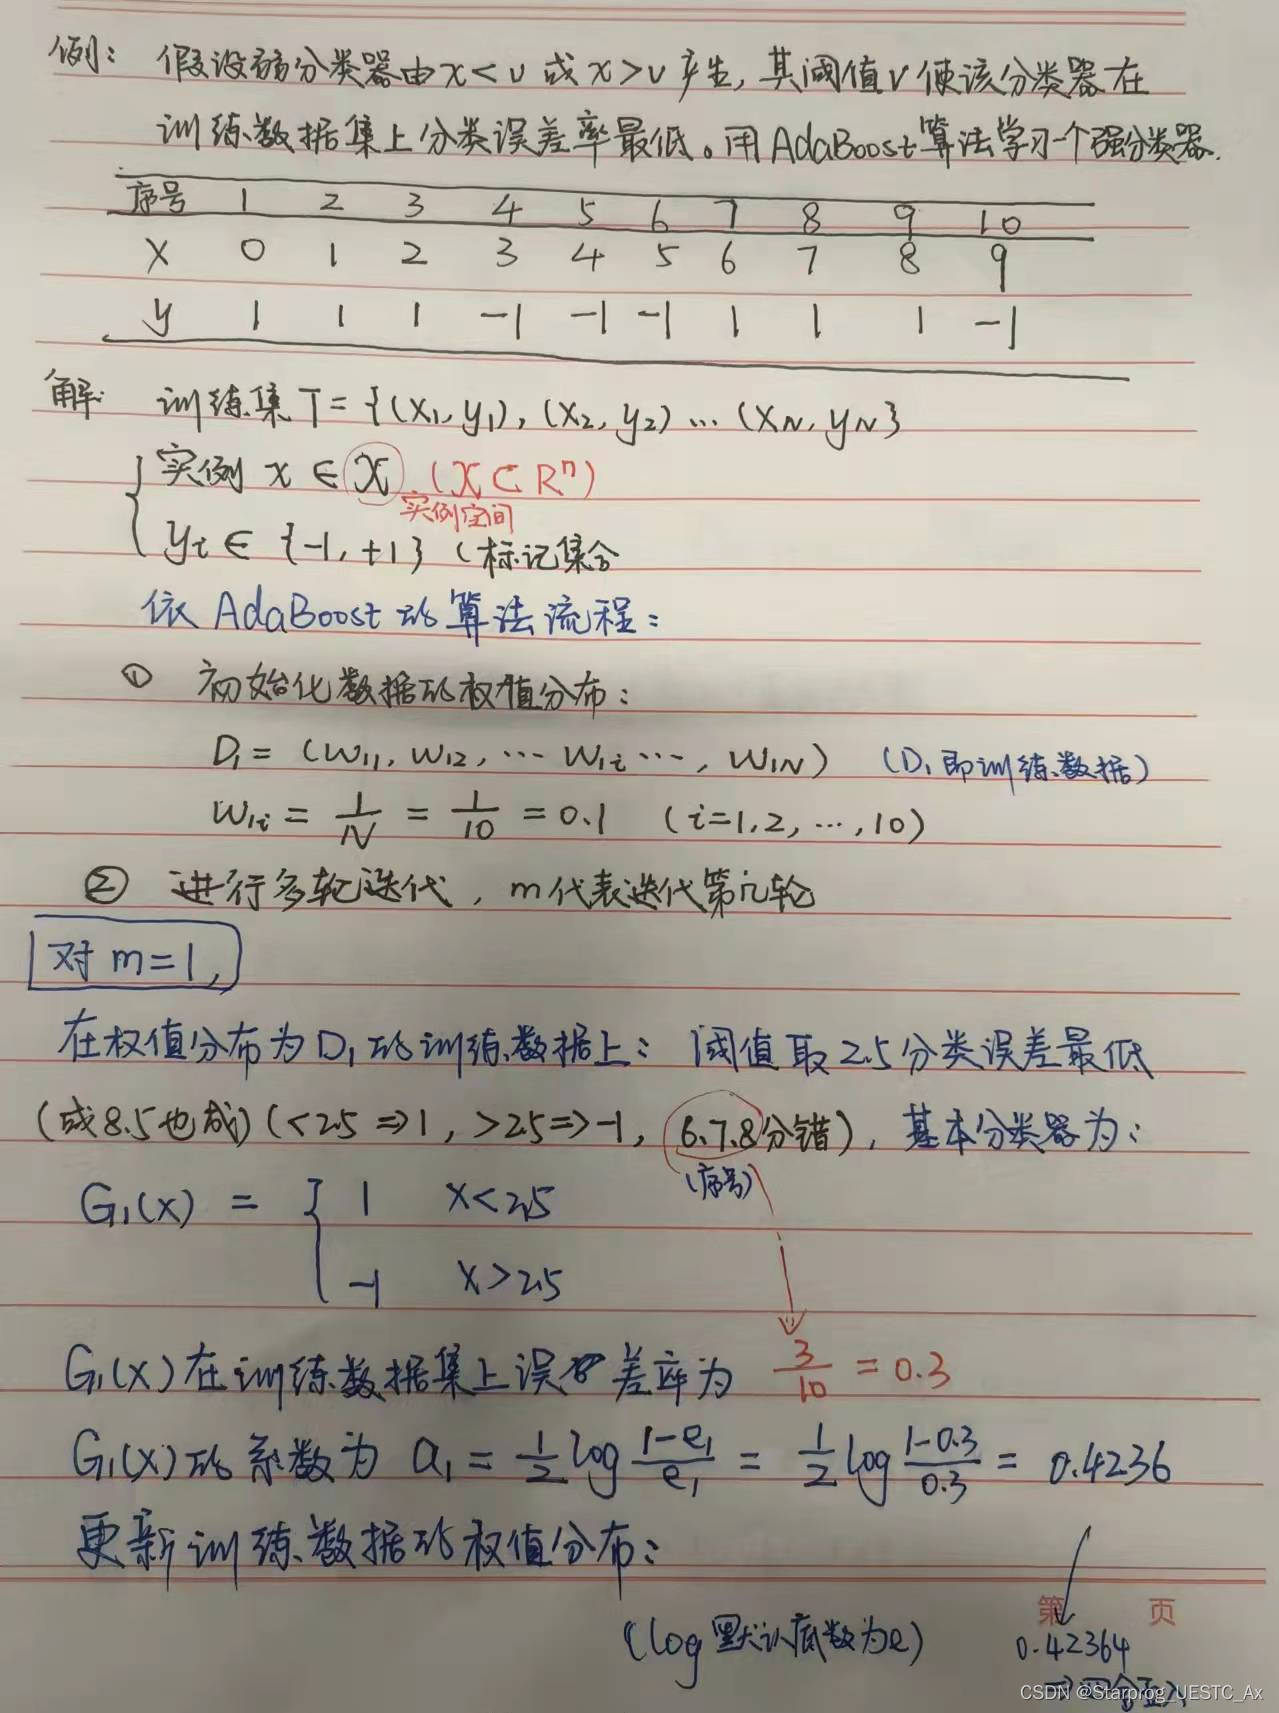 例： 假设弱分类器由x<v或x>v产生，其阈值v使该分类器在
训练数据集上分类误差率最低。用AdaBoost算法学习一个强分类器.
序号 1 2 3 4 5 6 7 8 9 10
X 0 1 2 3 4 5 6 7 8 9
y 1 1 1 -1 -1 -1 1 1 1 -1
解: 训练集T={(x₁,y₁),(x₂,y₂)…(xN,yN}
实例 x∈X (X⊂Rⁿ)
实例空间
yi∈{-1,+1} (标记集合
依AdaBoost的算法流程：
① 初始化数据的权值分布：
D₁=(W₁₁,W₁₂,…W₁i…,W₁N) (D₁即训练数据)
W₁i=1/N=1/10=0.1 (i=1,2,…,10)
② 进行多轮迭代，m代表迭代第几轮
对m=1,
在权值分布为D₁的训练数据上：阈值取2.5分类误差最低
(或8.5也成)(<2.5⇒1,>2.5⇒-1,6.7.8分错)，基本分类器为：
(序号)
G₁(x)={1 x<2.5
-1 x>2.5
G₁(x)在训练数据集上误差率为 3/10=0.3
G₁(x)的系数为 a₁=1/2log(1-e₁)/e₁=1/2log(1-0.3)/0.3=0.4236
更新训练数据的权值分布：
第 页
(log默认底数为e) 0.42364
→四舍五入
CSDN @Starprog_UESTC_Ax